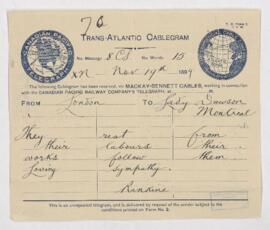 TRANS-ATLANTIC CABLEGRAM
CANADIAN PACIFIC
TELEGRAPH
No. Message 8 CS No. Words 15
Nov 19th 1899
The following Cablegram has been received, via MACKAY-BENNETT CABLES, working in connection
with the CANADIAN PACIFIC RAILWAY COMPANY'S TELEGRAPH, at
FROM London TO Lady Dawson
Montreal
They rest from
their labours their
works follow them
Loving sympathy.
Rankine
This is an unrepeated telegram, and is delivered by request of the sender subject to the
conditions printed on Form No. 2.